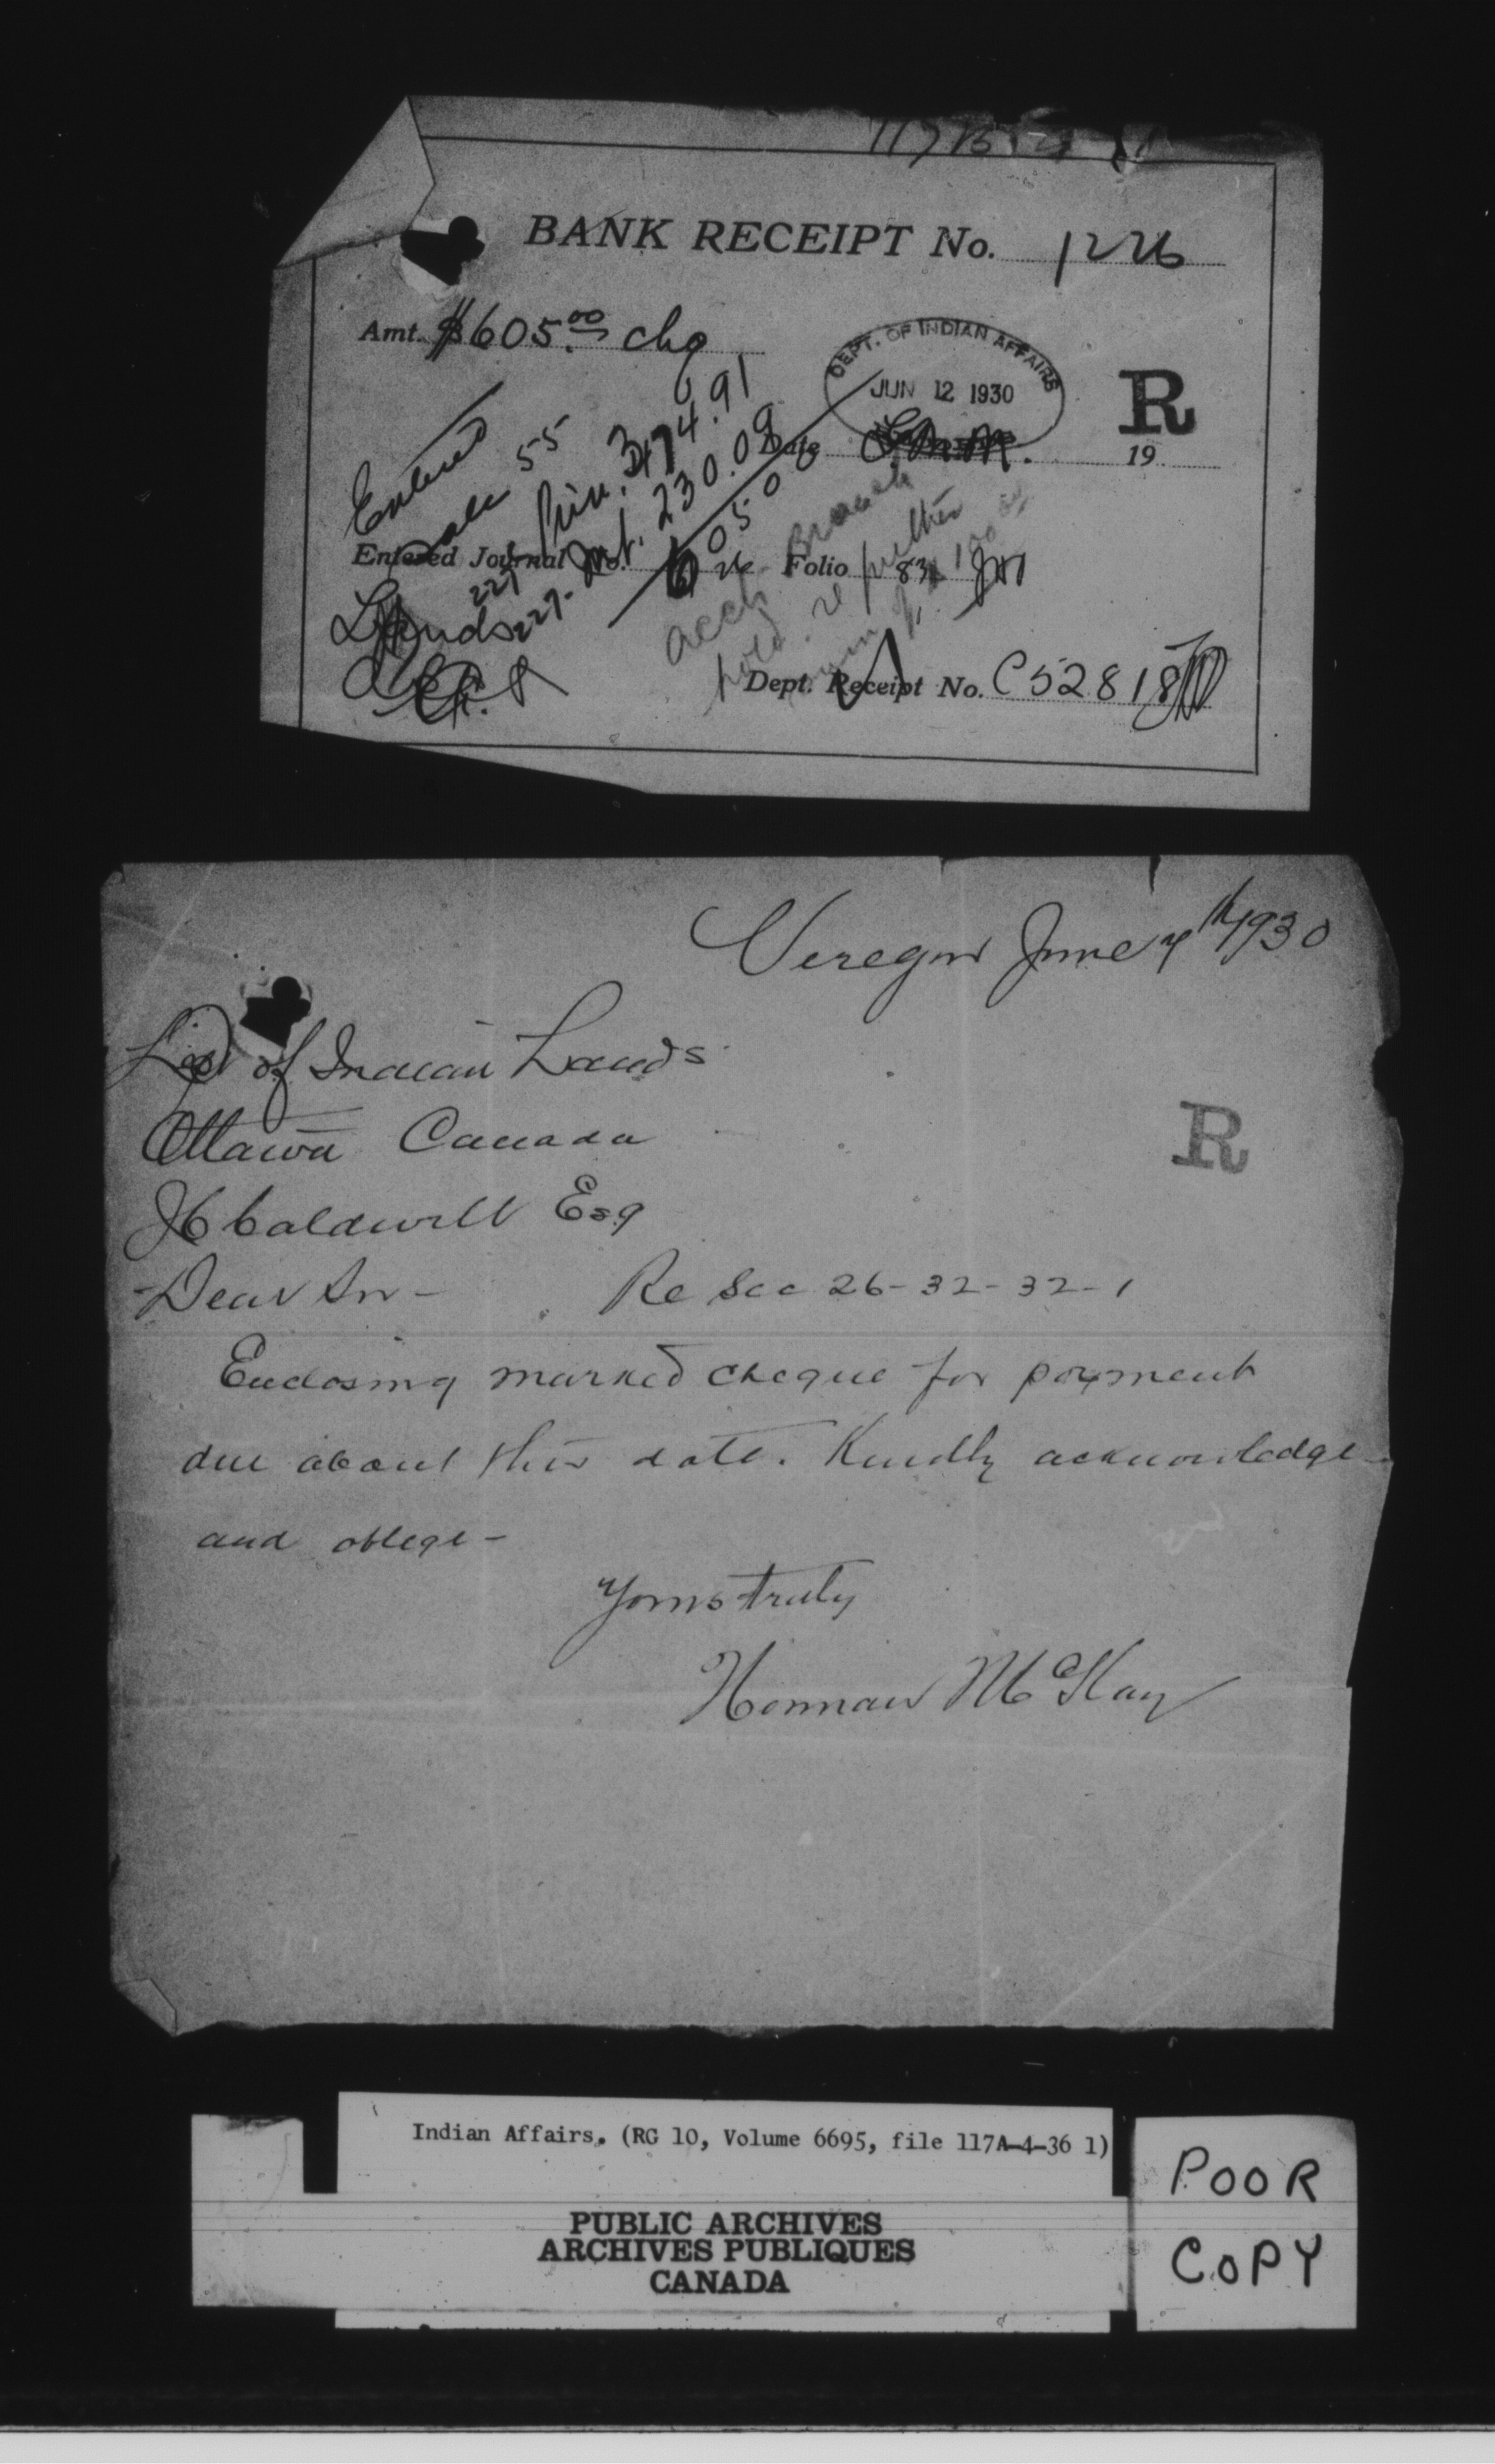 BANK RECEIPT No. 1226
Amt. $605.00 chq
DEPT. OF INDIAN AFFAIRS
JUN 12 1930
R
Date 19
Entered
Sale 55
Prin. 374.91
Int. 230.09
605.00
Entered Journal No. Folio 83
227
Lands
Accts Branch
hold re further
Dept. Receipt No. C52818
Veregin June 7th 1930
of Indian Lands
Ottawa Canada
R
Caldwell Esq
Dear Sir - Re Sec 26-32-32-1
Enclosing marked cheque for payment
due about this date. Kindly acknowledge
and oblege -
Yours truly
Norman McKay
Indian Affairs. (RG 10, Volume 6695, file 117A-4-36 1)
PUBLIC ARCHIVES
ARCHIVES PUBLIQUES
CANADA
POOR
COPY